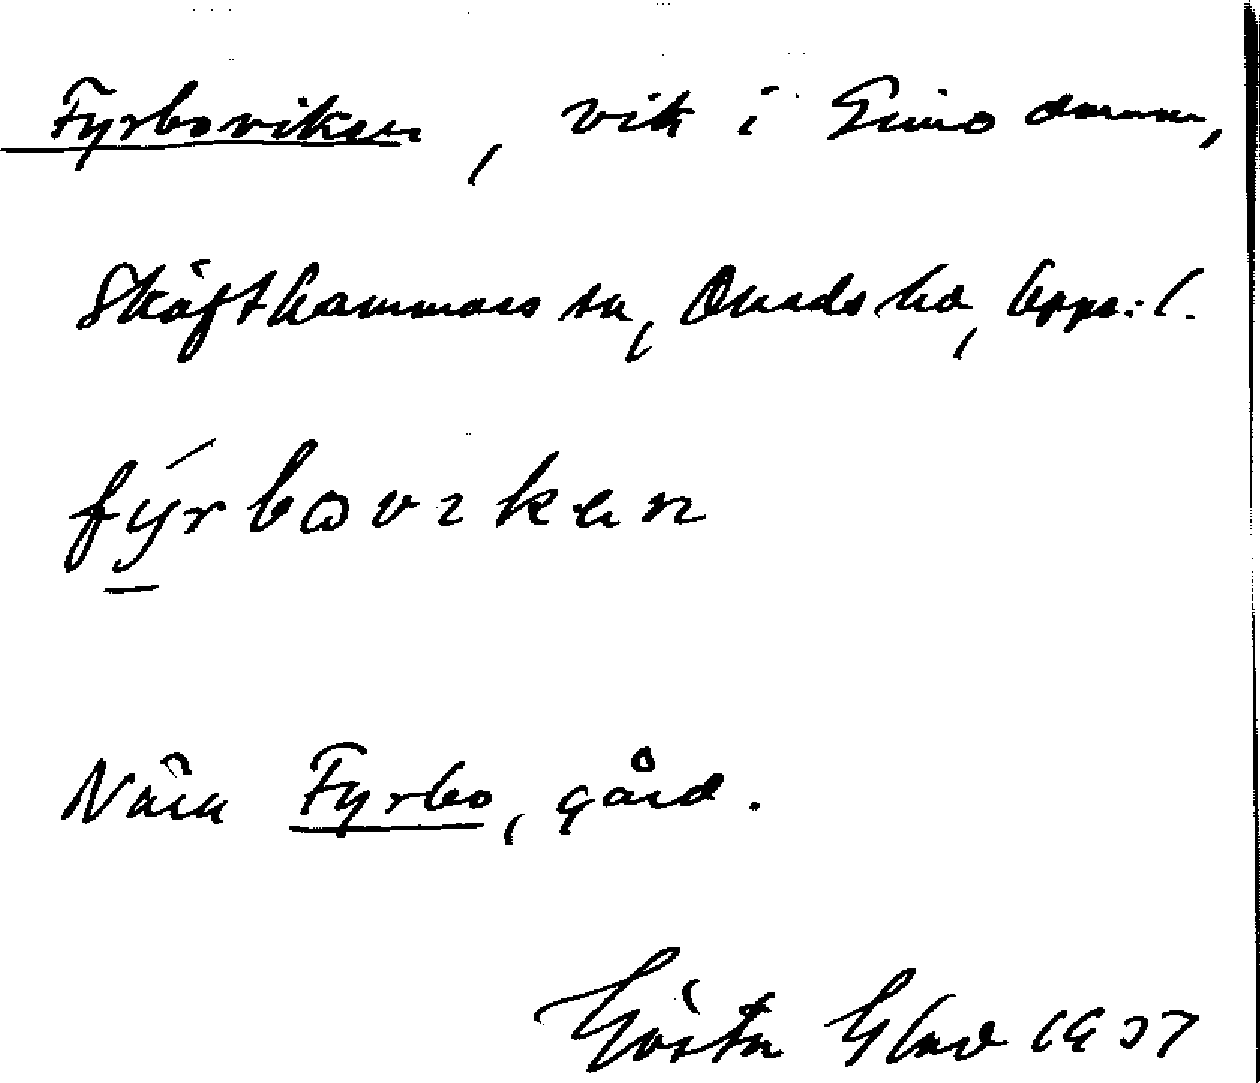 Fyrboviken, vik i Gimo damm,
Skäfthammars sn, Oland hd, Upps. l.
fýrbωvıken
Nära Fyrbo, gård.
Gösta 1937